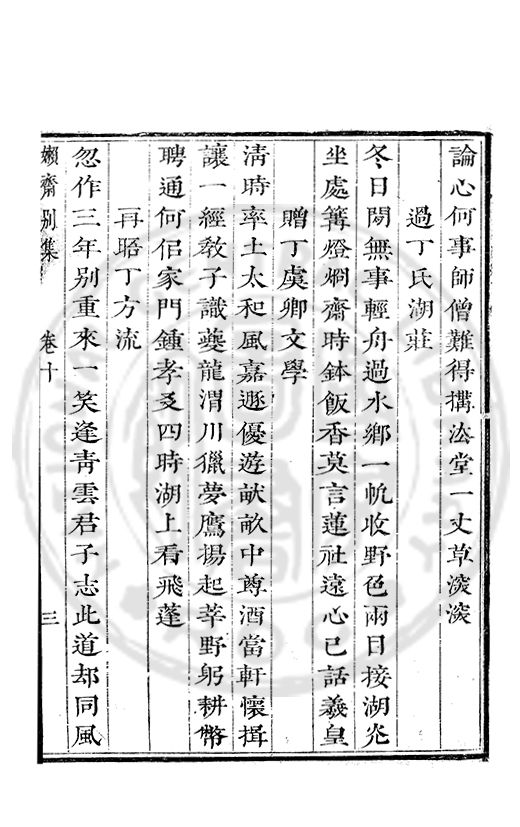 論心何事師僧難得搆法堂一丈草湥湥
過丁氏湖莊
冬日閒無事輕舟過水鄉一帆收野色兩日接湖炗
坐處篝燈烱齋時鉢飯香莫言蓮社遠心已話羲皇
贈丁虞卿文學
清時率土太和風嘉遯優遊畎畝中尊酒當軒懷揖
讓一經教子識夔龍渭川獵夢鷹揚起莘野躬耕幣
聘通何侣家門鍾孝友四時湖上看飛蓬
再晤丁方流
忽作三年别重來一笑逢青雲君子志此道却同風
嬾齋别集 卷十 三